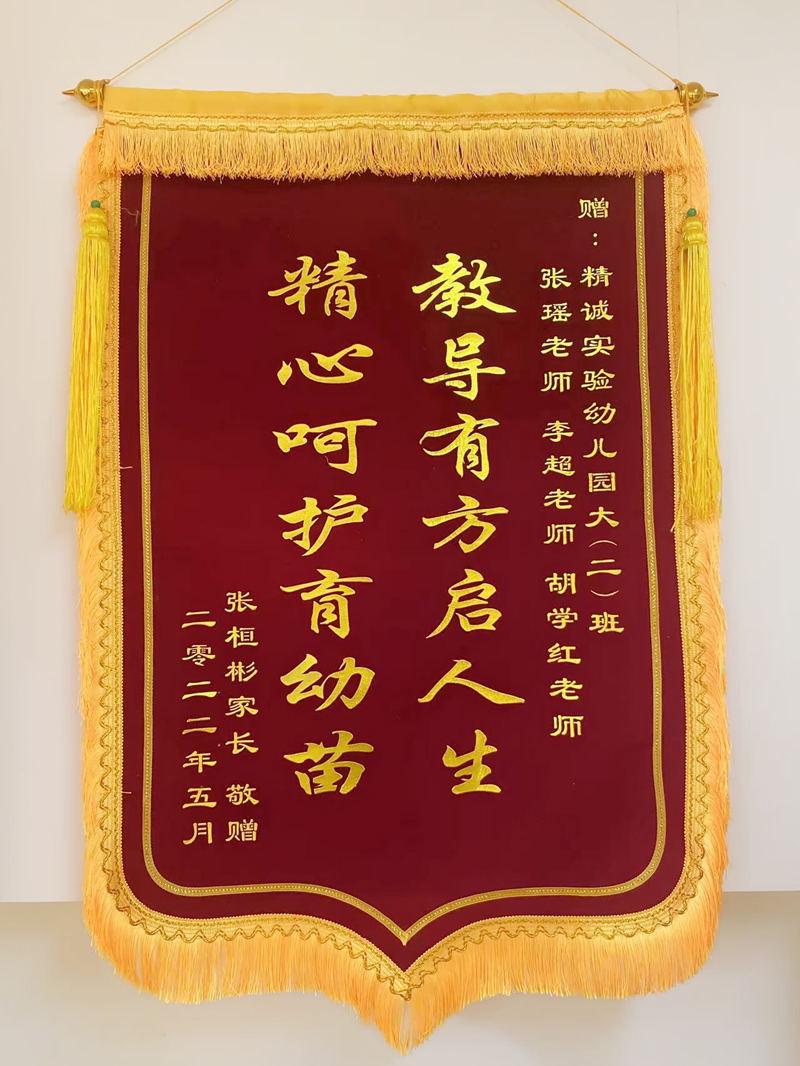 赠：精诚实验幼儿园大（二）班
张瑶老师 李超老师 胡学红老师
教导有方启人生
精心呵护育幼苗
张桓彬家长 敬赠
二零二二年五月